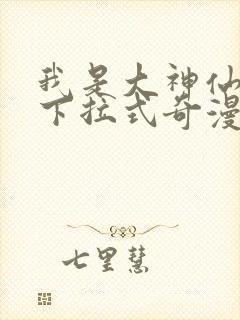 我是大神仙
下拉式奇漫
七里慧